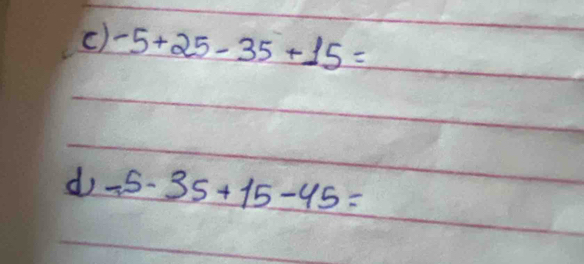 c) -5+25-35+15=
d) -5-35+15-45=